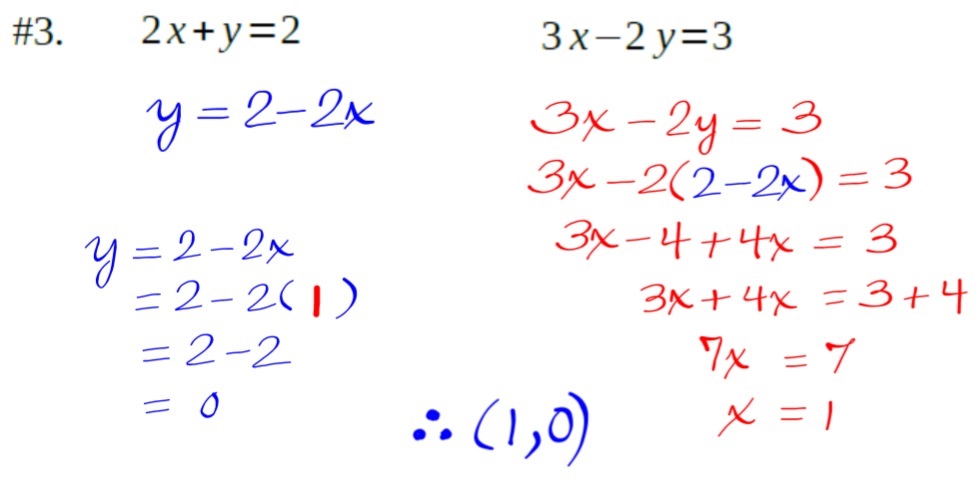 #3. 2x+y=2 3x−2y=3
y = 2−2x
y = 2−2x
= 2−2(1)
= 2−2
= 0
3x − 2y = 3
3x −2(2−2x) = 3
3x −4 +4x = 3
3x + 4x = 3+4
7x = 7
x = 1
∴ (1,0)